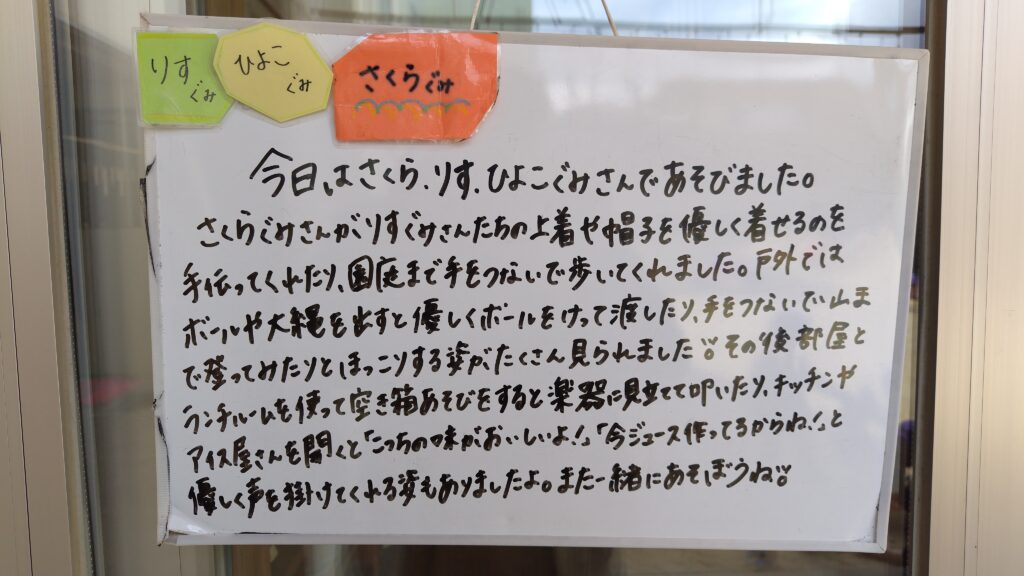 りすぐみ
ひよこぐみ
さくらぐみ
今日はさくら、りす、ひよこぐみさんであそびました。
さくらぐみさんがりすぐみさんたちの上着や帽子を優しく着せるのを
手伝ってくれたり、園庭まで手をつないで歩いてくれました。戸外では
ボールや大縄を出すと優しくボールをけって渡したり、手をつないで山ま
で登ってみたりとほっこりする姿がたくさん見られました。その後部屋と
ランチルームを使って空き箱あそびをすると楽器に見立てて叩いたり、キッチンや
アイス屋さんを開くと「こっちの味がおいしいよ!」「今ジュース作ってるからね!」と
優しく声を掛けてくれる姿もありましたよ。また一緒にあそぼうね。